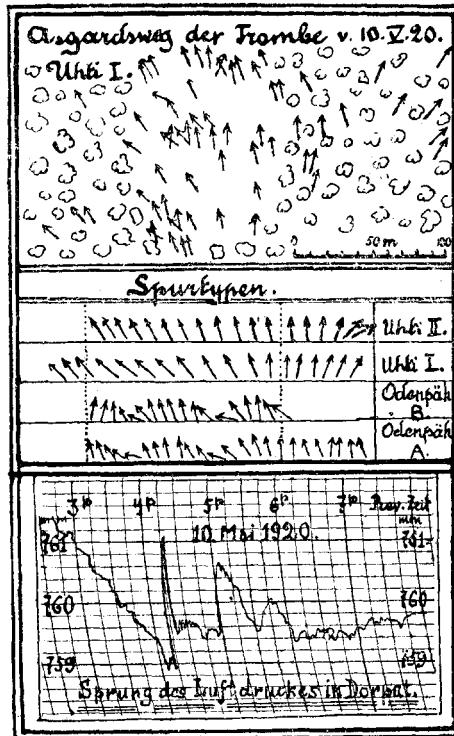 Asgardsweg der Trombe v. 10.V.20.
Uhti I.
0 50 m 100
Spurtypen.
Uhti II.
Uhti I.
Odenpäh B.
Odenpäh A.
3p 4p 5p 6p 7p Prov. Zeit
mm
761 10. Mai 1920. 761
760 760
759 759
Sprung des Luftdruckes in Dorpat.